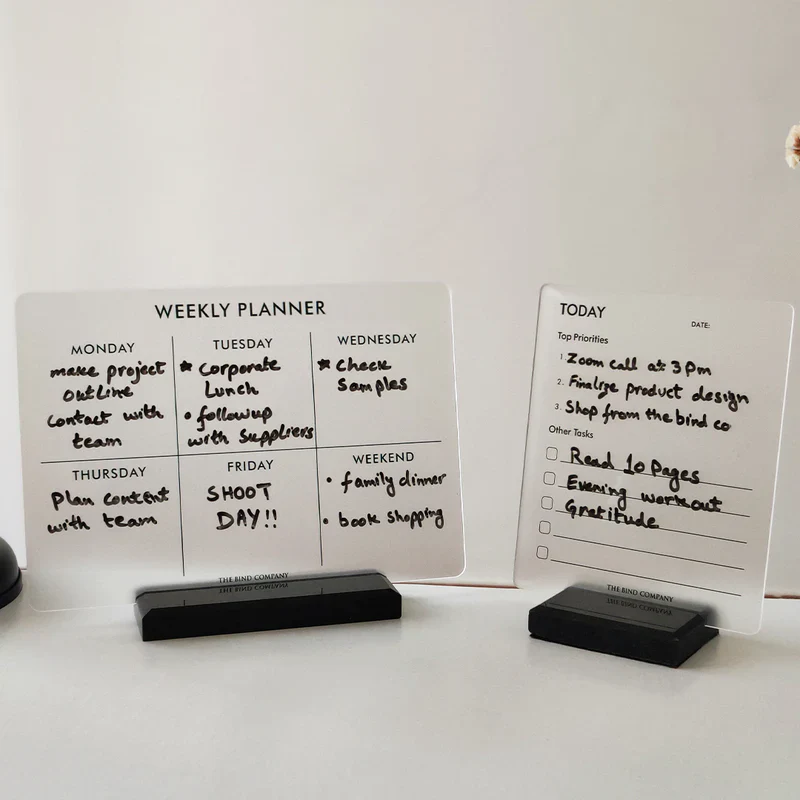 WEEKLY PLANNER
MONDAY
make project
outline
contact with
team
TUESDAY
* Corporate
Lunch
• followup
with Suppliers
WEDNESDAY
* Check
Samples
THURSDAY
Plan content
with team
FRIDAY
SHOOT
DAY!!
WEEKEND
• family dinner
• book shopping
THE BIND COMPANY
TODAY
DATE:
Top Priorities
1. Zoom call at 3pm
2. Finalize product design
3. Shop from the bind co
Other Tasks
Read 10 Pages
Evening workout
Gratitude
THE BIND COMPANY